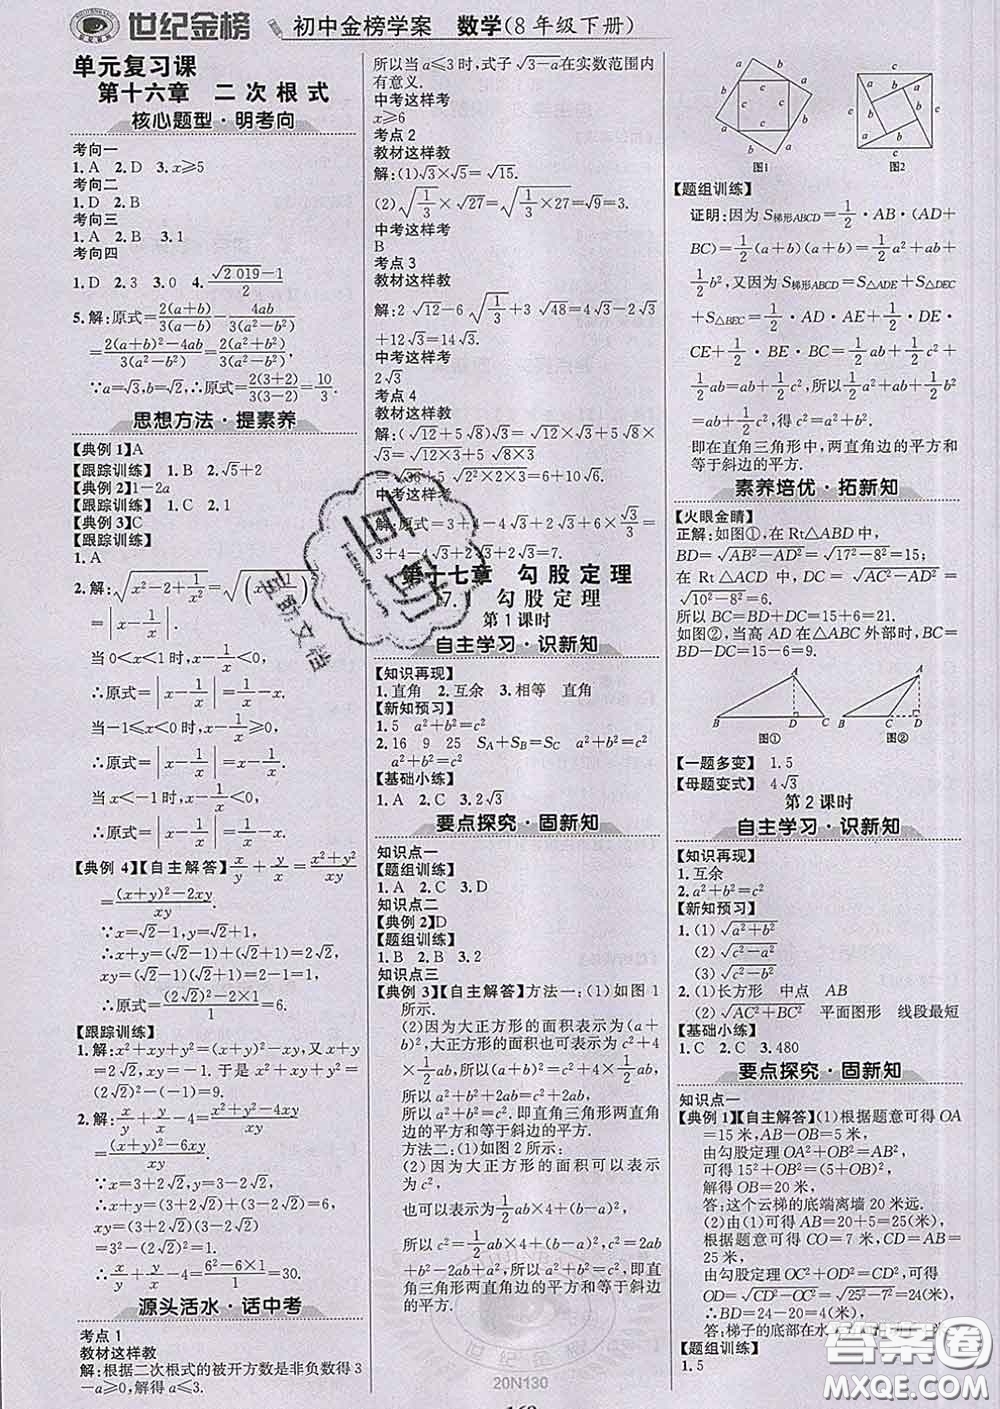 世纪金榜 初中金榜学案 数学(8年级下册)
单元复习课
第十六章 二次根式
核心题型·明考向
考向一
1.A 2.D 3.x≥5
考向二
1.D 2.B
考向三
1.A 2.B 3.1
考向四
1.D 2.3 3.0 4.(√2 019-1)/2
5.解:原式=2(a+b)/3(a-b)-4ab/3(a²-b²)
=(2(a+b)²-4ab)/3(a²-b²)=2(a²+b²)/3(a²-b²).
∵a=√3,b=√2,∴原式=2(3+2)/3(3-2)=10/3.
思想方法·提素养
【典例1】A
【跟踪训练】 1.B 2.√5+2
【典例2】1-2a
【跟踪训练】 1.C 2.1
【典例3】C
【跟踪训练】
1.A
2.解:√(x²-2+1/x²)=
|x-1/x|.
当0<x<1时,x-1/x<0,
∴原式=|x-1/x|=1/x-x;
当-1≤x<0时,x-1/x≥0,
∴原式=|x-1/x|=x-1/x;
当x<-1时,x-1/x<0,
∴原式=|x-1/x|=1/x-x.
【典例4】【自主解答】x/y+y/x=(x²+y²)/xy
=((x+y)²-2xy)/xy.
∵x=√2-1,y=√2+1,
∴x+y=(√2-1)+(√2+1)=2√2,
xy=(√2-1)(√2+1)=2-1=1,
∴原式=((2√2)²-2×1)/1=6.
【跟踪训练】
1.解:x²+xy+y²=(x+y)²-xy,又x+y=2√2-1,
2.解:x/y+y/x-4=(x²+y²-4xy)/xy
=((x+y)²-6xy)/xy,
∵x=3+2√2,y=3-2√2,
∴x+y=(3+2√2)+(3-2√2)=6,
xy=(3+2√2)(3-2√2)
=3²-(2√2)²=1.
∴x/y+y/x-4=(6²-6×1)/1=30.
源头活水·话中考
考点1
教材这样教
解:根据二次根式的被开方数是非负数得3
-a≥0,解得a≤3.
所以当a≤3时,式子√3-a在实数范围内
有意义.
中考这样考
x≥6
考点2
教材这样教
解:(1)√3×√5=√15.
(2)√(1/3)×√27=√(1/3×27)=√9=3.
中考这样考
B
考点3
教材这样教
解:2√12-6√(1/3)+3√48=4√3-2√3
+12√3=14√3.
中考这样考
2√3
考点4
教材这样教
解:(√12+5√8)√3=√12×√3
+5√8×√3
=√36+5√(2²×2×3)=6+10√6.
中考这样考
3+4-4√3+2√3+2√3=7.
第十七章 勾股定理
勾股定理
第1课时
自主学习·识新知
【知识再现】
1.直角 2.互余 3.相等 直角
【新知预习】
1.5 a²+b²=c²
2.16 9 25 S_A+S_B=S_C a²+b²=c²
a²+b²=c²
【基础小练】
1.A 2.C 3.2√3
要点探究·固新知
知识点一
【题组训练】
1.A 2.C 3.D
知识点二
【典例2】D
【题组训练】
1.B 2.B 3.2
知识点三
【典例3】【自主解答】方法一:(1)如图1
所示.
(2)因为大正方形的面积表示为(a+
b)²,大正方形的面积也可表示为c²+4
×1/2ab,
所以(a+b)²=c²+4×1/2ab,
a²+b²+2ab=c²+2ab,
所以a²+b²=c².即直角三角形两直角边
的平方和等于斜边的平方.
方法二:(1)如图2所示:
(2)因为大正方形的面积可以表示
为c²,
又可以表示为1/2ab×4+(b-a)²,
所以c²=1/2ab×4+(b-a)²,c²=2ab
+b²-2ab+a²,所以a²+b²=c²,即直
角三角形两直角边的平方和等于斜边
的平方.
图1 图2
【题组训练】
证明:因为S梯形ABCD=1/2·AB·(AD+
BC)=1/2(a+b)(a+b)=1/2a²+ab+
1/2b²,又因为S梯形ABCD=S△ADE+S△DEC
+S△BEC=1/2·AD·AE+1/2·DE·
CE+1/2·BE·BC=1/2ab+1/2c²+
1/2ab=ab+1/2c²,所以1/2a²+ab+1/2b²
=ab+1/2c²,得c²=a²+b².
即在直角三角形中,两直角边的平方和
等于斜边的平方.
素养培优·拓新知
【火眼金睛】
正解:如图①,在Rt△ABD中,
BD=√(AB²-AD²)=√(17²-8²)=15;
在Rt△ACD中,DC=√(AC²-AD²)
=√(10²-8²)=6.
所以BC=BD+DC=15+6=21.
如图②,当高AD在△ABC外部时,BC=
BD-DC=15-6=9.
图① 图②
【一题多变】 1.5
【母题变式】 4√3
第2课时
自主学习·识新知
【知识再现】
1.互余
2.a²+b²=c²
【新知预习】
1.(1)√(a²+b²)
(2)√(c²-a²)
(3)√(c²-b²)
2.(1)长方形 中点 AB
(2)√(AC²+BC²) 平面图形 线段最短
【基础小练】
1.C 2.C 3.480
要点探究·固新知
知识点一
【典例1】【自主解答】(1)根据题意可得OA
=15米,AB-OB=5米,
由勾股定理OA²+OB²=AB²,
可得15²+OB²=(5+OB)²,
解得OB=20米,
答:这个云梯的底端离墙20米远.
(2)由(1)可得AB=20+5=25(米),
根据题意可得CO=7米,CD=AB=
25米,
由勾股定理OC²+OD²=CD²,可得OD
=√(CD²-OC²)=√(25²-7²)=24米,
∴BD=24-20=4(米),
答:梯子的底部在水
【题组训练】
1.5
20N130
世纪金榜
答案圈
MXQE.COM